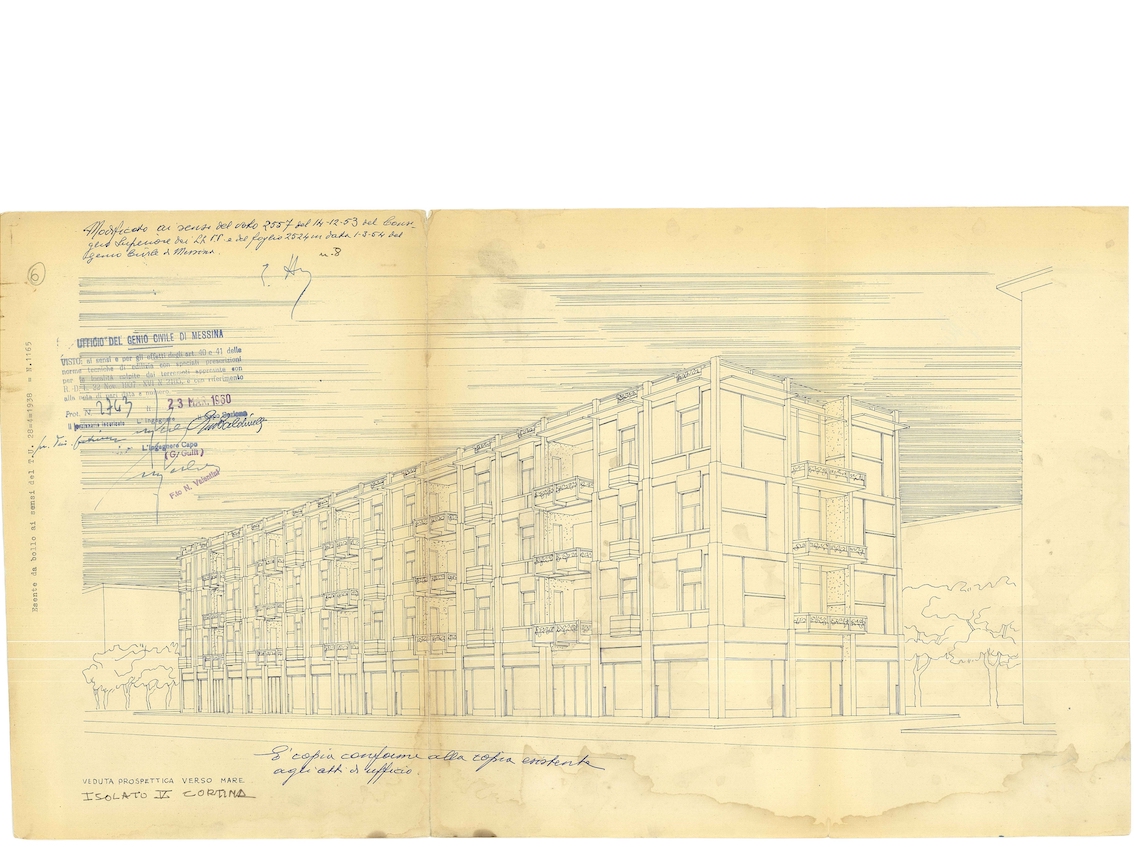 Modificato ai sensi del voto 2557 del 14-12-53 del Consi-
glio Superiore dei LL PP e del foglio 2524 in data 1-3-54 del
Genio Civile di Messina.
n. 8
6
UFFICIO DEL GENIO CIVILE DI MESSINA
VISTO, ai sensi e per gli effetti degli art. 40 e 41 delle
norme tecniche di edilizia con speciali prescrizioni
per le località colpite dai terremoti approvate con
R. D. L. 22 Nov. 1937 XVI N 2105, e con riferimento
alla
Prot. N. 2763 li 23 MAR. 1960
L'Ingegnere Capo
(G. Gullì)
F.to N. Valentini
Esente da bollo ai sensi del T.U. 28=4=1938 = N.1165
E' copia conforme alla copia esistente
agli atti di ufficio.
VEDUTA PROSPETTICA VERSO MARE
ISOLATO V CORTINA